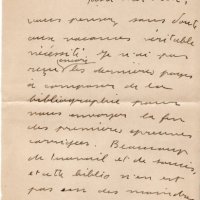 vous pensez sans doute
aux vacances véritable
nécessité. Je n'ai pas
encore
reçu les dernières pages
à composer de la
bibliographie pour
vous envoyer la fin
des premières épreuves
corrigées. Beaucoup
de travail et de soucis,
et cette biblio n'en est
pas un des moindres